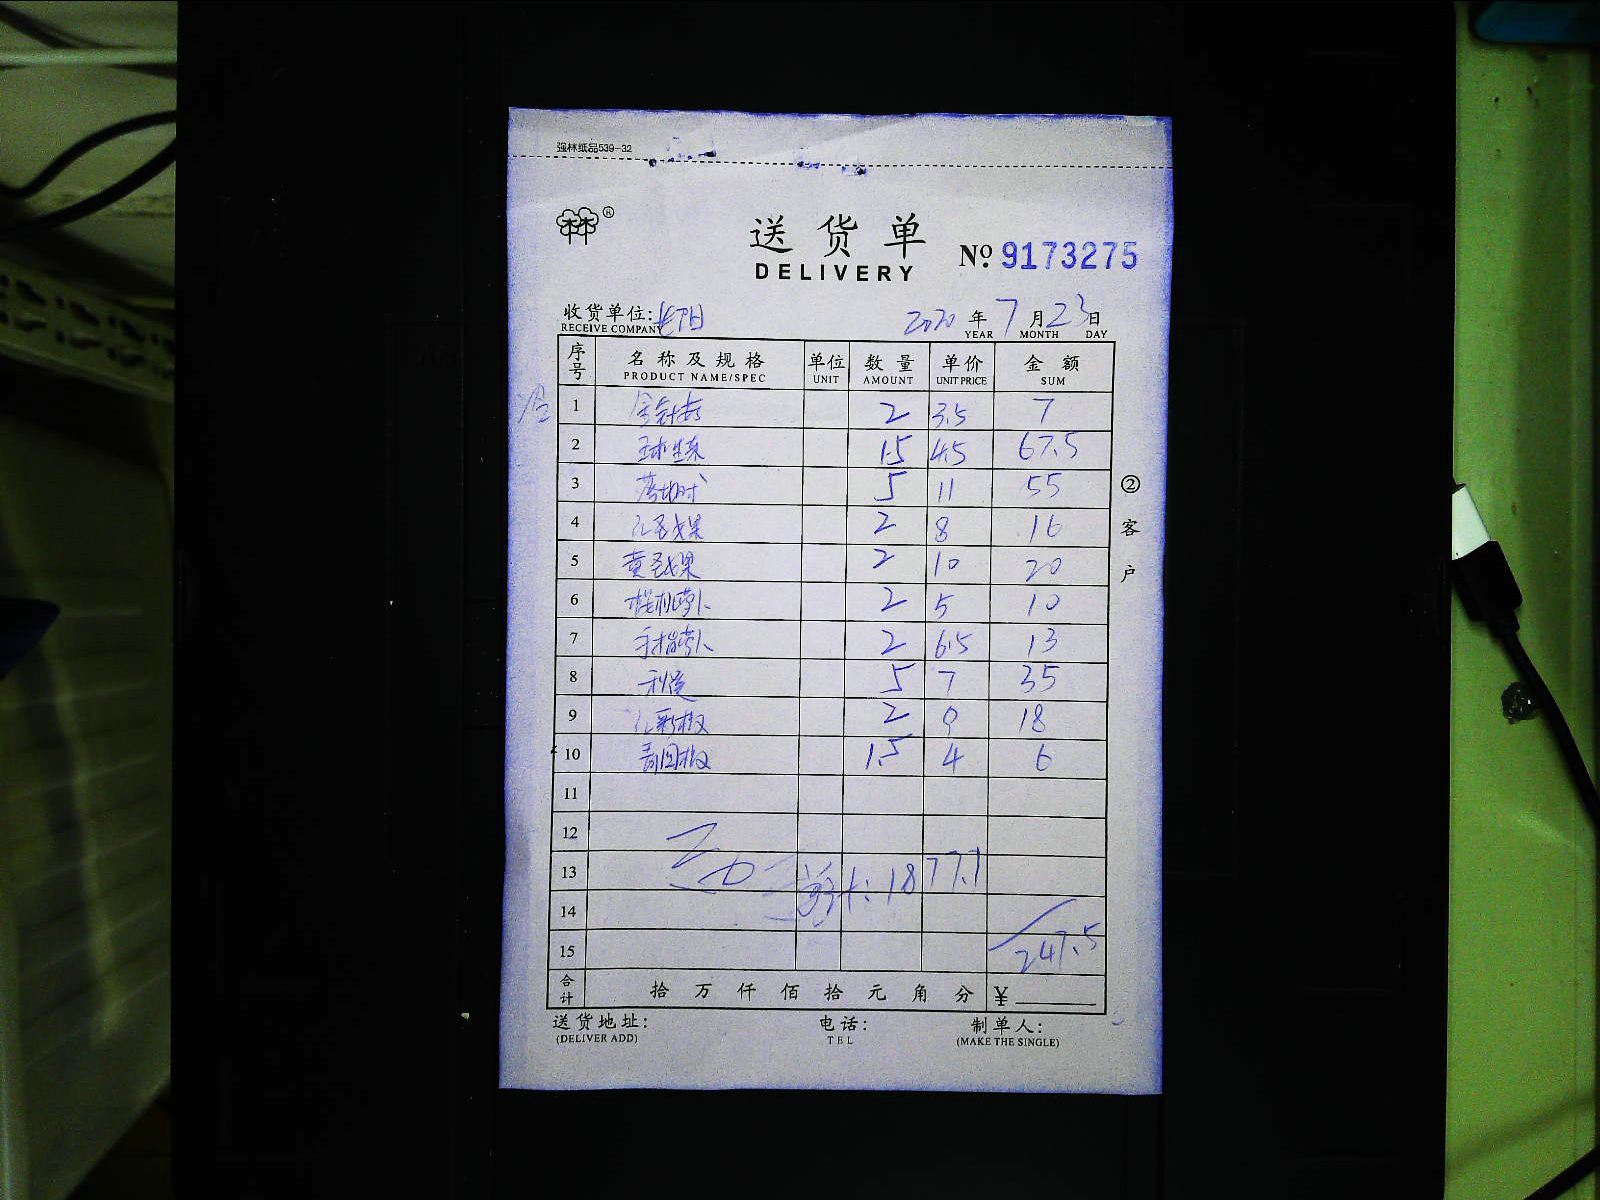 强林纸品539-32
林林®
送货单
DELIVERY
№ 9173275
收货单位:
RECEIVE COMPANY
2020年7月23日
YEAR MONTH DAY
序号 名称及规格 单位 数量 单价 金额
PRODUCT NAME/SPEC UNIT AMOUNT UNIT PRICE SUM
1 金针菇 2 3.5 7
2 球生菜 15 4.5 67.5
3 5 11 55
4 红圣女果 2 8 16
5 黄圣女果 2 10 20
6 樱桃萝卜 2 5 10
7 手指萝卜 2 6.5 13
8 5 7 35
9 红彩椒 2 9 18
10 青圆椒 1.5 4 6
11
12
13 总计:1877.1
14
15 247.5
合计 拾万仟佰拾元角分 ¥
送货地址: 电话: 制单人:
(DELIVER ADD) TEL (MAKE THE SINGLE)
②客户